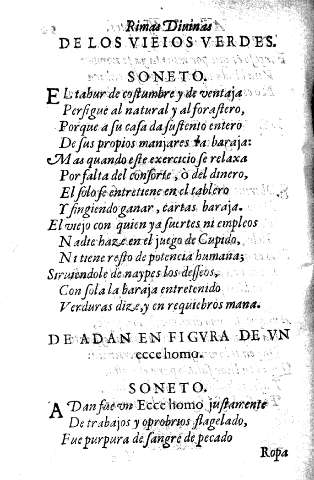 Rimas Diuinas
DE LOS VIEIOS VERDES.
SONETO.
EL tahur de costumbre y de ventaja
Persigue al natural y al forastero,
Porque a su casa da sustento entero
De sus propios manjares la baraja:
Mas quando este exercicio se relaxa
Por falta del consorte, ò del dinero,
El solo se entretiene en el tablero
Y fingiendo ganar, cartas baraja.
El viejo con quien ya suertes ni empleos
Nadie haze en el juego de Cupido,
Ni tiene resto de potencia humana;
Siruiendole de naypes los desseos,
Con sola la baraja entretenido
Verduras dize, y en requiebros mana.
DE ADAN EN FIGVRA DE VN
ecce homo.
SONETO.
ADan fue vn Ecce homo justamente
De trabajos y oprobrios flagelado,
Fue purpura de sangre de pecado
Ropa